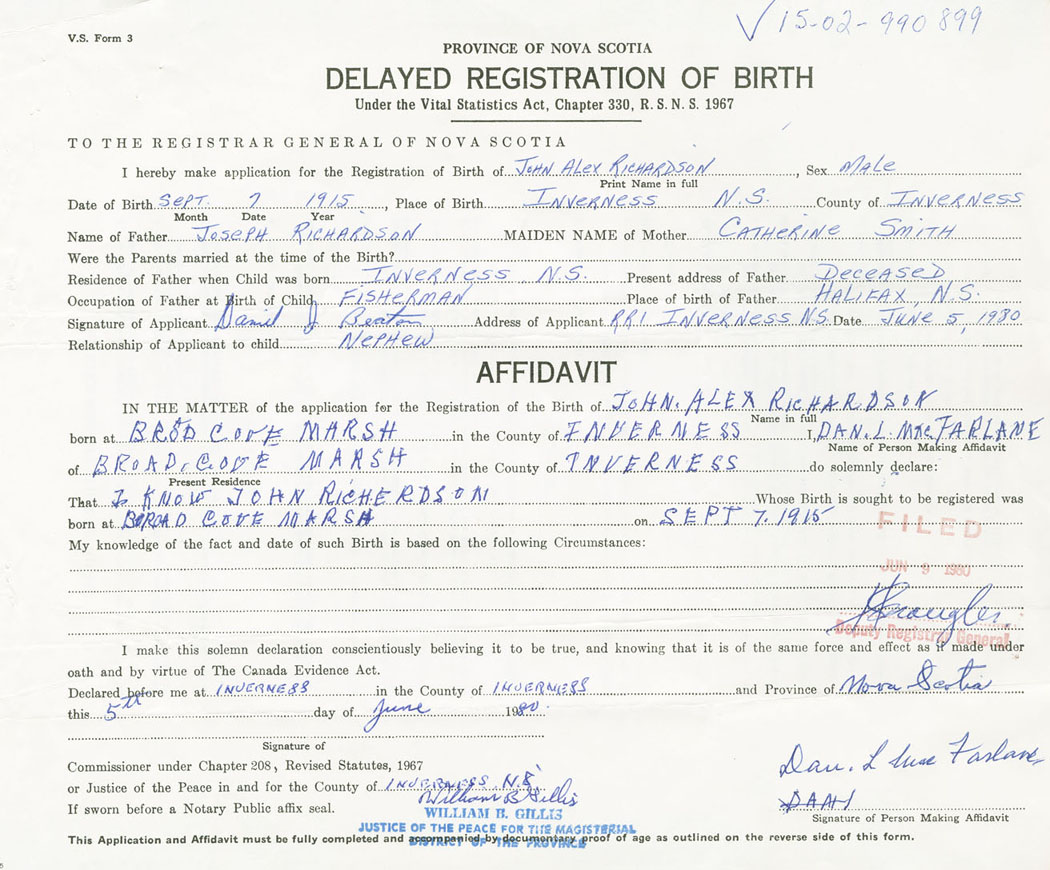 ✓ 15-02-990 899
V.S. Form 3
PROVINCE OF NOVA SCOTIA
DELAYED REGISTRATION OF BIRTH
Under the Vital Statistics Act, Chapter 330, R. S. N. S. 1967
TO THE REGISTRAR GENERAL OF NOVA SCOTIA
I hereby make application for the Registration of Birth of JOHN ALEX RICHARDSON, Sex MALE
Print Name in full
Date of Birth SEPT. 7 1915, Place of Birth INVERNESS N.S. County of INVERNESS
Month Date Year
Name of Father JOSEPH RICHARDSON MAIDEN NAME of Mother CATHERINE SMITH
Were the Parents married at the time of the Birth?
Residence of Father when Child was born INVERNESS N.S. Present address of Father DECEASED
Occupation of Father at Birth of Child FISHERMAN Place of birth of Father HALIFAX, N.S.
Signature of Applicant Daniel J Beaton Address of Applicant RR1 INVERNESS N.S. Date JUNE 5, 1980
Relationship of Applicant to child NEPHEW
AFFIDAVIT
IN THE MATTER of the application for the Registration of the Birth of JOHN. ALEX RICHARDSON
Name in full
born at BROAD COVE MARSH in the County of INVERNESS I, DAN. L. MACFARLANE
Name of Person Making Affidavit
of BROAD. COVE MARSH in the County of INVERNESS do solemnly declare:
Present Residence
That I KNOW JOHN RICHERDSON Whose Birth is sought to be registered was
born at BROAD COVE MARSH on SEPT 7. 1915
FILED
My knowledge of the fact and date of such Birth is based on the following Circumstances:
JUN 9 1980
Deputy Registrar General
I make this solemn declaration conscientiously believing it to be true, and knowing that it is of the same force and effect as if made under
oath and by virtue of The Canada Evidence Act.
Declared before me at INVERNESS in the County of INVERNESS and Province of Nova Scotia
this 5th day of June 1980.
Signature of
Commissioner under Chapter 208, Revised Statutes, 1967
or Justice of the Peace in and for the County of INVERNESS, N.S.
William B Gillis
Dan. L MacFarlane
If sworn before a Notary Public affix seal.
WILLIAM B. GILLIS
Signature of Person Making Affidavit
JUSTICE OF THE PEACE FOR THE MAGISTERIAL
DISTRICT OF THE PROVINCE
This Application and Affidavit must be fully completed and accompanied by documentary proof of age as outlined on the reverse side of this form.